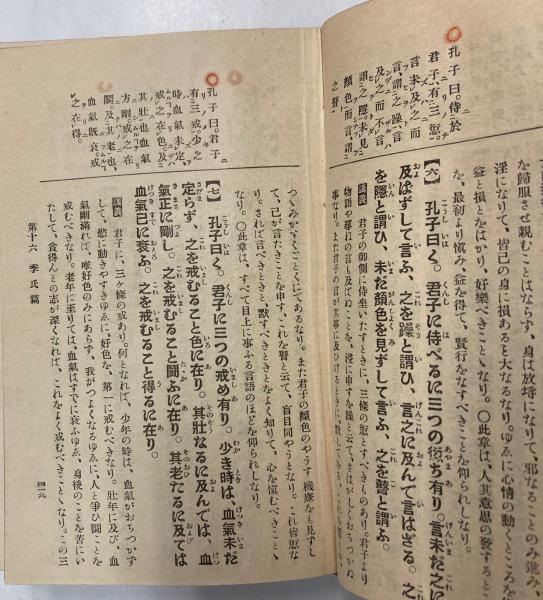 を歸服させ親むことはならず、身は放埓になりて、邪なることのみ進み、
淫になりて、皆己の身に損あると大なるなり。ゆゑに心情の動くところを
益と損とをはかり、好樂べきこと、なり。〇此章は、人其意思の發すると
を、最初より愼み、益を得て、賢行をなすべきことを仰られしなり。
孔子曰。侍於
君子有三愆。
言未及之而
言、謂之躁、言
及之而不言、
謂之隱。未見
顏色而言謂
之瞽
【六】孔子曰く。君子に侍べるに三つの愆ち有り。言未だ之に
及ばずして言ふ、之を躁と謂ひ、言之に及んで言はざる。之
を隱と謂ひ、未だ顏色を見ずして言ふ、之を瞽と謂ふ。
講義 君子の御側に侍坐いたすときに、三條の愆とすべきものあり。君子より
物語や尋ねの言も及ばぬことを、浸に申すを躁と云て、さはがしくおちつかぬ
事なり。また君子の言が其事に及びける
つゝみかくすごとくにてあるなり。また君子の顏色のやうす機嫌をも見すし
て、己が言たきことを申す、これを瞽と云て、盲目同やうとなり。これ皆愆な
り。されば言べきときと、默すべきときとをよく知りて、心を愼むべきこと、
なり。〇此章は、すべて目上に事ふる言語のほどを仰られしなり。
孔子曰。君子
有三戒。少之
時血氣未定、
戒之在色。及
其壯也血氣
方剛。戒之在
鬪。及其老也、
血氣既衰戒
之在得。
【七】孔子曰く。君子に三つの戒め有り。少き時は、血氣未だ
定らず、之を戒むること色に在り。其壯なるに及んでは、血
氣正に剛し。之を戒むること鬪ふに在り。其老たるに及ては
血氣已に衰ふ。之を戒むること得るに在り。
講義 君子に、三ヶ條の戒あり。何となれば、少年の時は、血氣がおちつかず
して、慾に動きやすきゆゑに、好色を、第一に戒むべきなり。壯年に及び、血
氣剛滿れば、唯好色のみにあらず、我がつよくなるゆゑに、人と爭ひ鬪ことを
戒むべきなり。老年に至りては、血氣はすでに衰ふゆゑ、身後のことを苦にい
たして、貪得んとの志が深くなれば、これをよく戒むべきこと、なり。この三
第十六 季氏篇
四二九